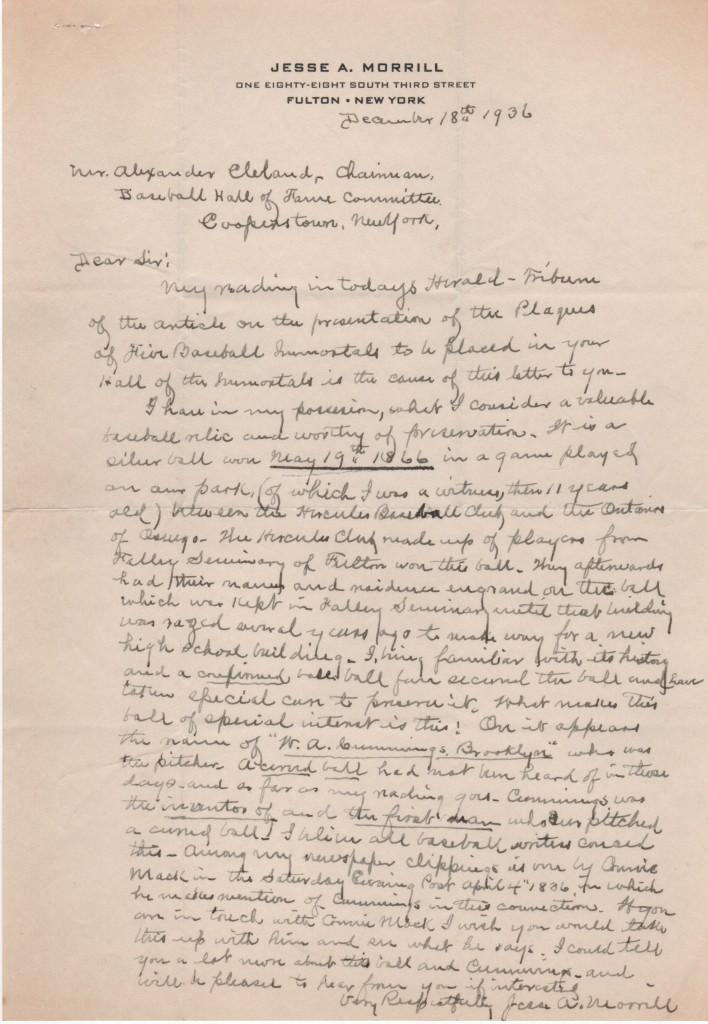 JESSE A. MORRILL
ONE EIGHTY-EIGHT SOUTH THIRD STREET
FULTON • NEW YORK
December 18th 1936
Mr. Alexander Cleland, Chairman,
Baseball Hall of Fame Committee.
Cooperstown, New York,
Dear Sir:
My reading in todays Herald-Tribune
of the article on the presentation of the Plaques
of Five Baseball Immortals to be placed in your
Hall of the Immortals is the cause of this letter to you-
I have in my possesion, what I consider a valuable
baseball relic and worthy of preservation. It is a
silver ball won May 19th 1866 in a game played
on our park, (of which I was a witness, then 11 years
old) between the Hercules Baseball Club and the Ontarios
of Oswego- The Hercules Club made up of players from
Falley Seminary of Fulton won the ball. They afterwards
had their names and residence engraved on the ball
which was kept in Falley Seminary until that building
was razed several years ago to make way for a new
high school building- I, being familiar with its history
and a confirmed base ball fan secured the ball and have
taken special care to preserve it. What makes this
ball of special interest is this! On it appears
the name of "W. A. Cummings, Brooklyn" who was
the pitcher. A curved ball had not been heard of in those
days- and as far as my reading goes- Cummings was
the inventor of and the first man who ever pitched
a curved ball. I believe all baseball writers concede
this- Among my newspaper clippings is one by Connie
Mack in the Saturday Evening Post April 4" 1836 in which
he makes mention of Cummings in this connection. If you
are in touch with Connie Mack I wish you would take
this up with him and see what he says. I could tell
you a lot more about this ball and Cummings- and
will be pleased to hear from you if interested
Very Respectfully Jesse A. Morrill